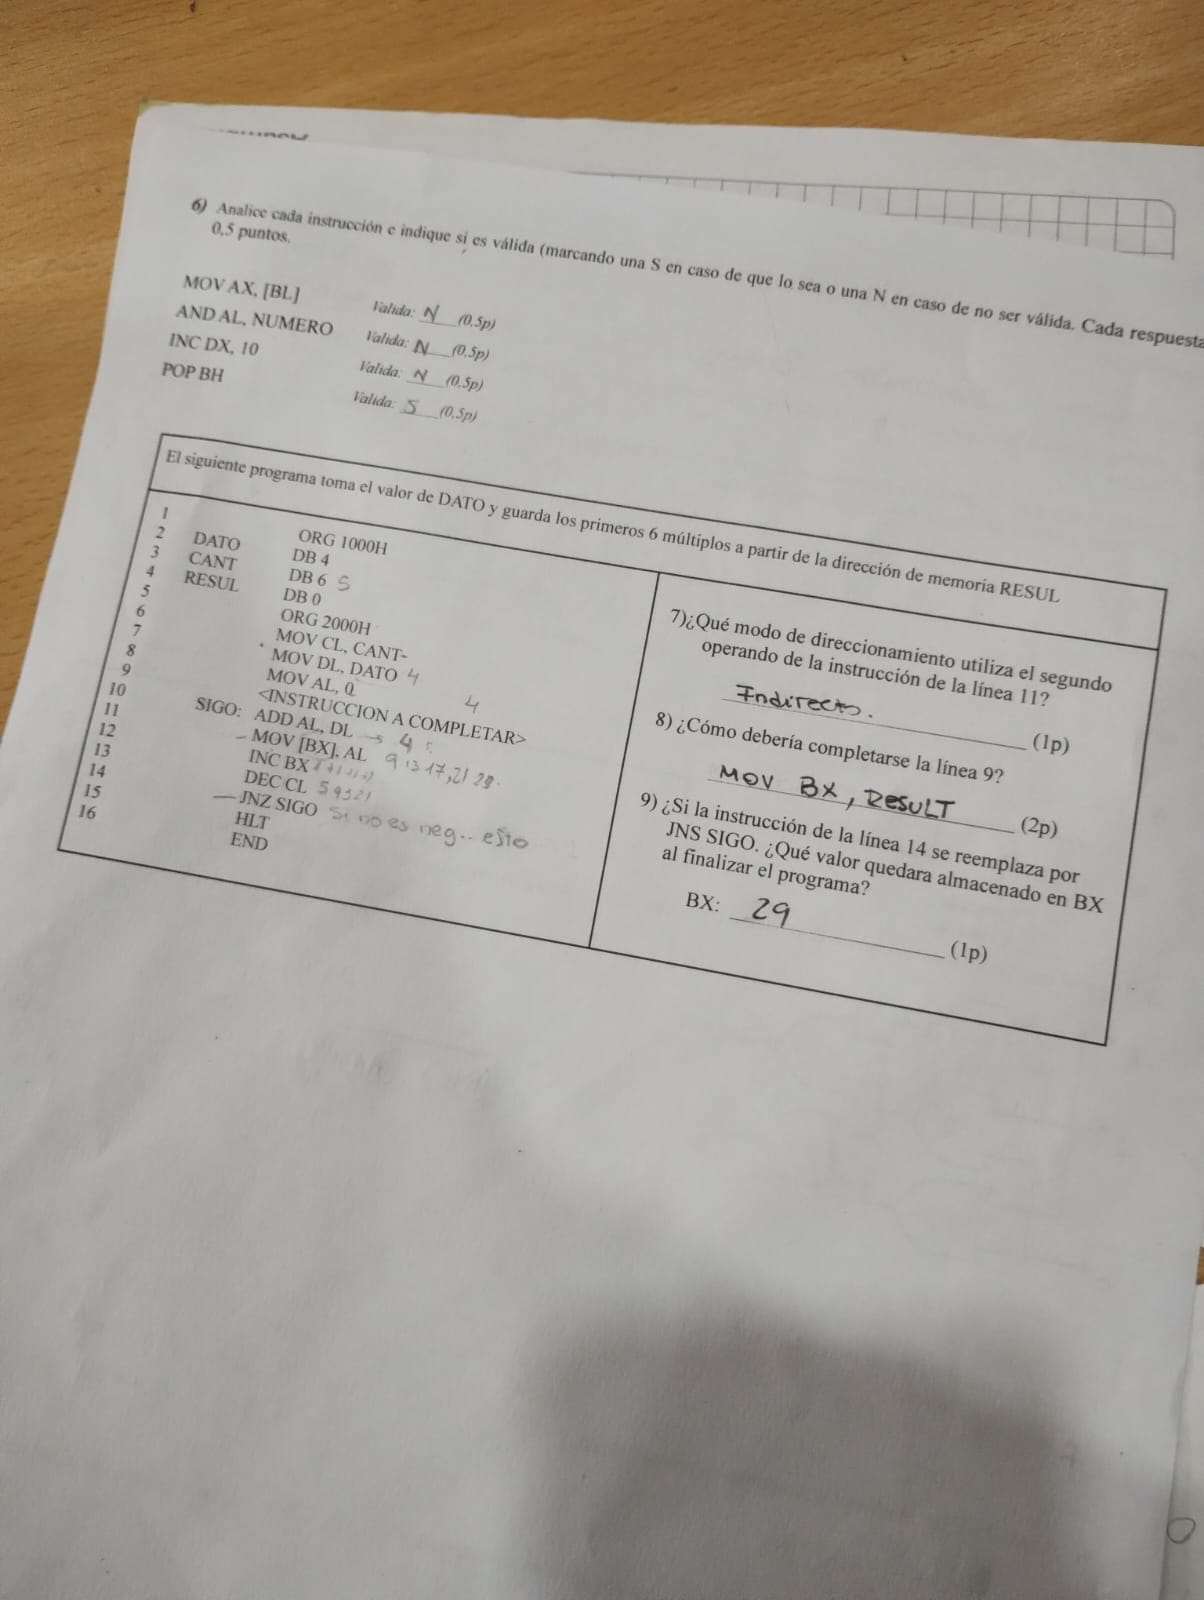 6) Analice cada instrucción e indique si es válida (marcando una S en caso de que lo sea o una N en caso de no ser válida. Cada respuesta
0,5 puntos.
MOV AX, [BL] Valida: N (0,5p)
AND AL, NUMERO Valida: N (0,5p)
INC DX, 10 Valida: N (0,5p)
POP BH Valida: S (0,5p)
El siguiente programa toma el valor de DATO y guarda los primeros 6 múltiplos a partir de la dirección de memoria RESUL
1 ORG 1000H
2 DATO DB 4
3 CANT DB 6 5
4 RESUL DB 0
5 ORG 2000H
6 MOV CL, CANT-
7 MOV DL, DATO 4
8 MOV AL, 0
9 <INSTRUCCION A COMPLETAR> 4
10 SIGO: ADD AL, DL → 4
11 MOV [BX], AL 9 13 17, 21
12 INC BX
13 DEC CL 5 4 3 2 1
14 JNZ SIGO Si no es neg.. esto
15 HLT
16 END
7)¿Qué modo de direccionamiento utiliza el segundo
operando de la instrucción de la línea 11?
Indirecto. (1p)
8) ¿Cómo debería completarse la línea 9?
MOV BX, RESULT (2p)
9) ¿Si la instrucción de la línea 14 se reemplaza por
JNS SIGO. ¿Qué valor quedara almacenado en BX
al finalizar el programa?
BX: 29 (1p)